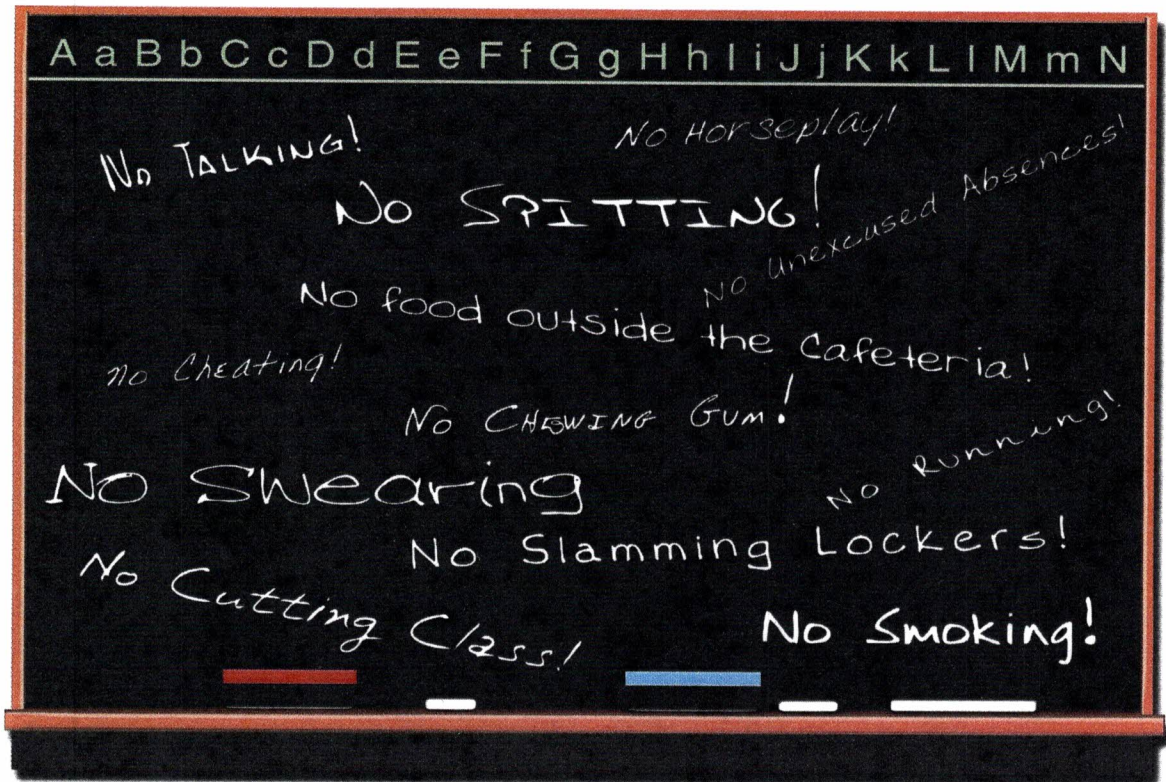 A a B b C c D d E e F f G g H h I i J j K k L l M m N
No Horseplay!
No TALKING!
No Unexcused Absences!
No SPITTING!
No food outside the Cafeteria!
no Cheating!
No CHEWING GUM!
No Running!
No Swearing
No Slamming Lockers!
No Cutting Class!
No Smoking!